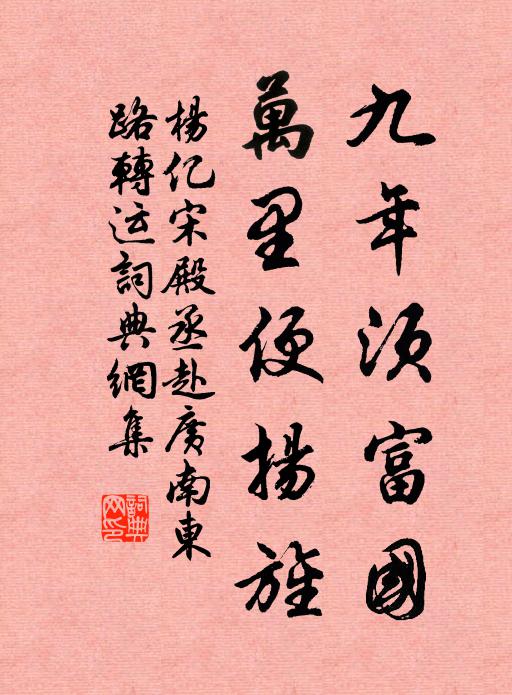 九年須富國
萬里便揚旌
楊亿宋殿丞赴廣南東
路轉运詞典網集
詞典网印